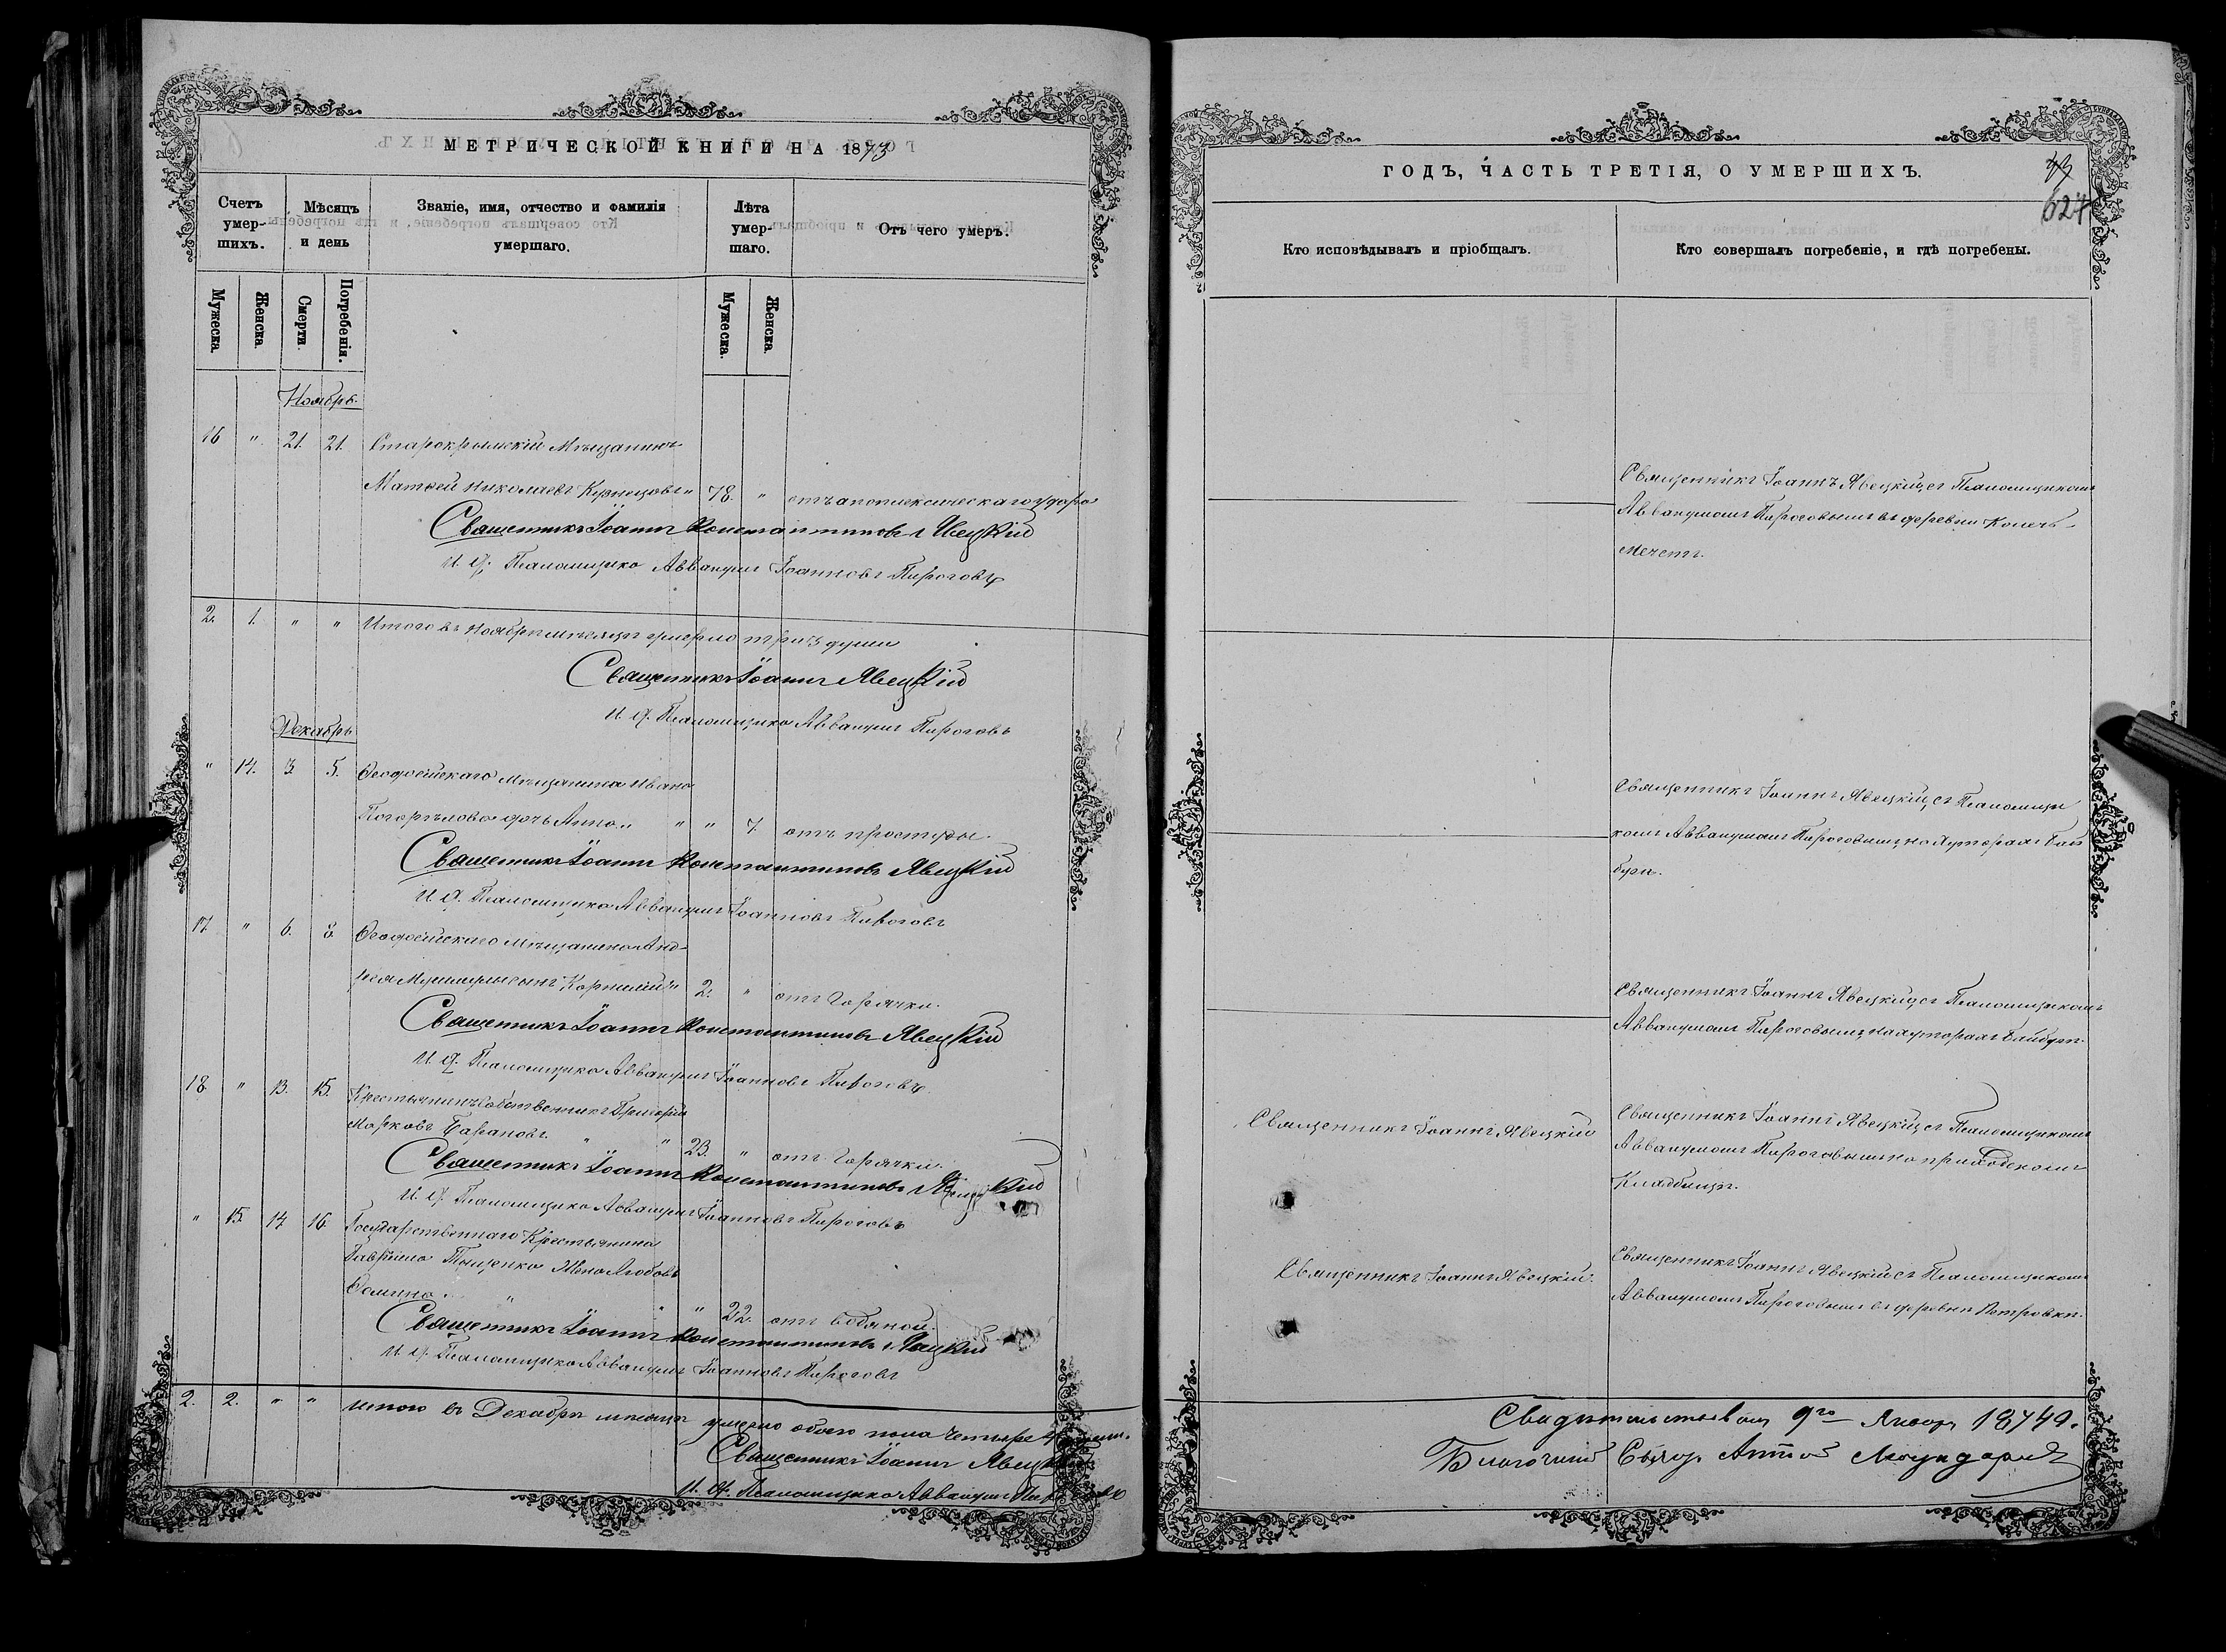 МЕТРИЧЕСКОЙ КНИГИ НА 1873
Счетъ умер-шихъ.
Мѣсяцъ и день
Званіе, имя, отчество и фамилія умершаго.
Лѣта умер-шаго.
Отъ чего умеръ.
Мужеска.
Женска.
Смерти.
Погребенія.
Мужеска.
Женска.
Ноябрь.
16 " 21. 21. Старокрымскій Мѣщанинъ
Матѳей Николаевъ Кузнецовъ " 78. " отъ апоплексическаго удара
Священникъ Іоаннъ Константиновъ Явецкій
И. д. Псаломщика Аввакумъ Іоанновъ Пироговъ
2. 1. " " Итого въ Ноябрѣ мѣсяцѣ умерло три 3 души
Священникъ Іоаннъ Явецкій
И. д. Псаломщика Аввакумъ Пироговъ
Декабрь
" 14. 3. 5. Ѳеодосійскаго Мѣщанина Ивана
Погорѣлова дочь Анна " " " 7. отъ простуды.
Священникъ Іоаннъ Константиновъ Явецкій
И. д. Псаломщика Аввакумъ Іоанновъ Пироговъ
17. " 6. 8. Ѳеодосійскаго Мѣщанина Анд-
рея сынъ Корнилій " 2. " отъ Горячки.
Священникъ Іоаннъ Константиновъ Явецкій
И. д. Псаломщика Аввакумъ Іоанновъ Пироговъ
18. " 13. 15. Крестьянинъ Собственникъ Григорій
Марковъ Барановъ " " 23. " отъ Горячки.
Священникъ Іоаннъ Константиновъ Явецкій
И. д. Псаломщика Аввакумъ Іоанновъ Пироговъ
" 15. 14. 16. Государственнаго Крестьянина
Гавріила Тищенко Жена Любовь
Ѳомина. " " " 22. отъ водяной.
Священникъ Іоаннъ Константиновъ Явецкій
И. д. Псаломщика Аввакумъ Іоанновъ Пироговъ
2. 2. " " Итого въ Декабрѣ мѣсяцѣ умерло обоего пола четыре души.
Священникъ Іоаннъ Явецкій
И. д. Псаломщика Аввакумъ Пироговъ
ГОДЪ, ЧАСТЬ ТРЕТІЯ, О УМЕРШИХЪ.
624
Кто исповѣдывалъ и пріобщалъ.
Кто совершалъ погребеніе, и гдѣ погребены.
Священникъ Іоаннъ Явецкій съ Псаломщикомъ
Аввакумомъ Пироговымъ въ деревни Конечь-
мечетъ.
Священникъ Іоаннъ Явецкій съ Псаломщи
комъ Аввакумомъ Пироговымъ на Хуторахъ Бай
буги.
Священникъ Іоаннъ Явецкій съ Псаломщикомъ
Аввакумомъ Пироговымъ на хуторахъ Байбуги.
Священникъ Іоаннъ Явецкій
Священникъ Іоаннъ Явецкій съ Псаломщикомъ
Аввакумомъ Пироговымъ на приходскомъ
Кладбищѣ.
Священникъ Іоаннъ Явецкій.
Священникъ Іоаннъ Явецкій съ Псаломщикомъ
Аввакумомъ Пироговымъ въ деревни Петровки.
9го Января 1874 г.
Благочинный